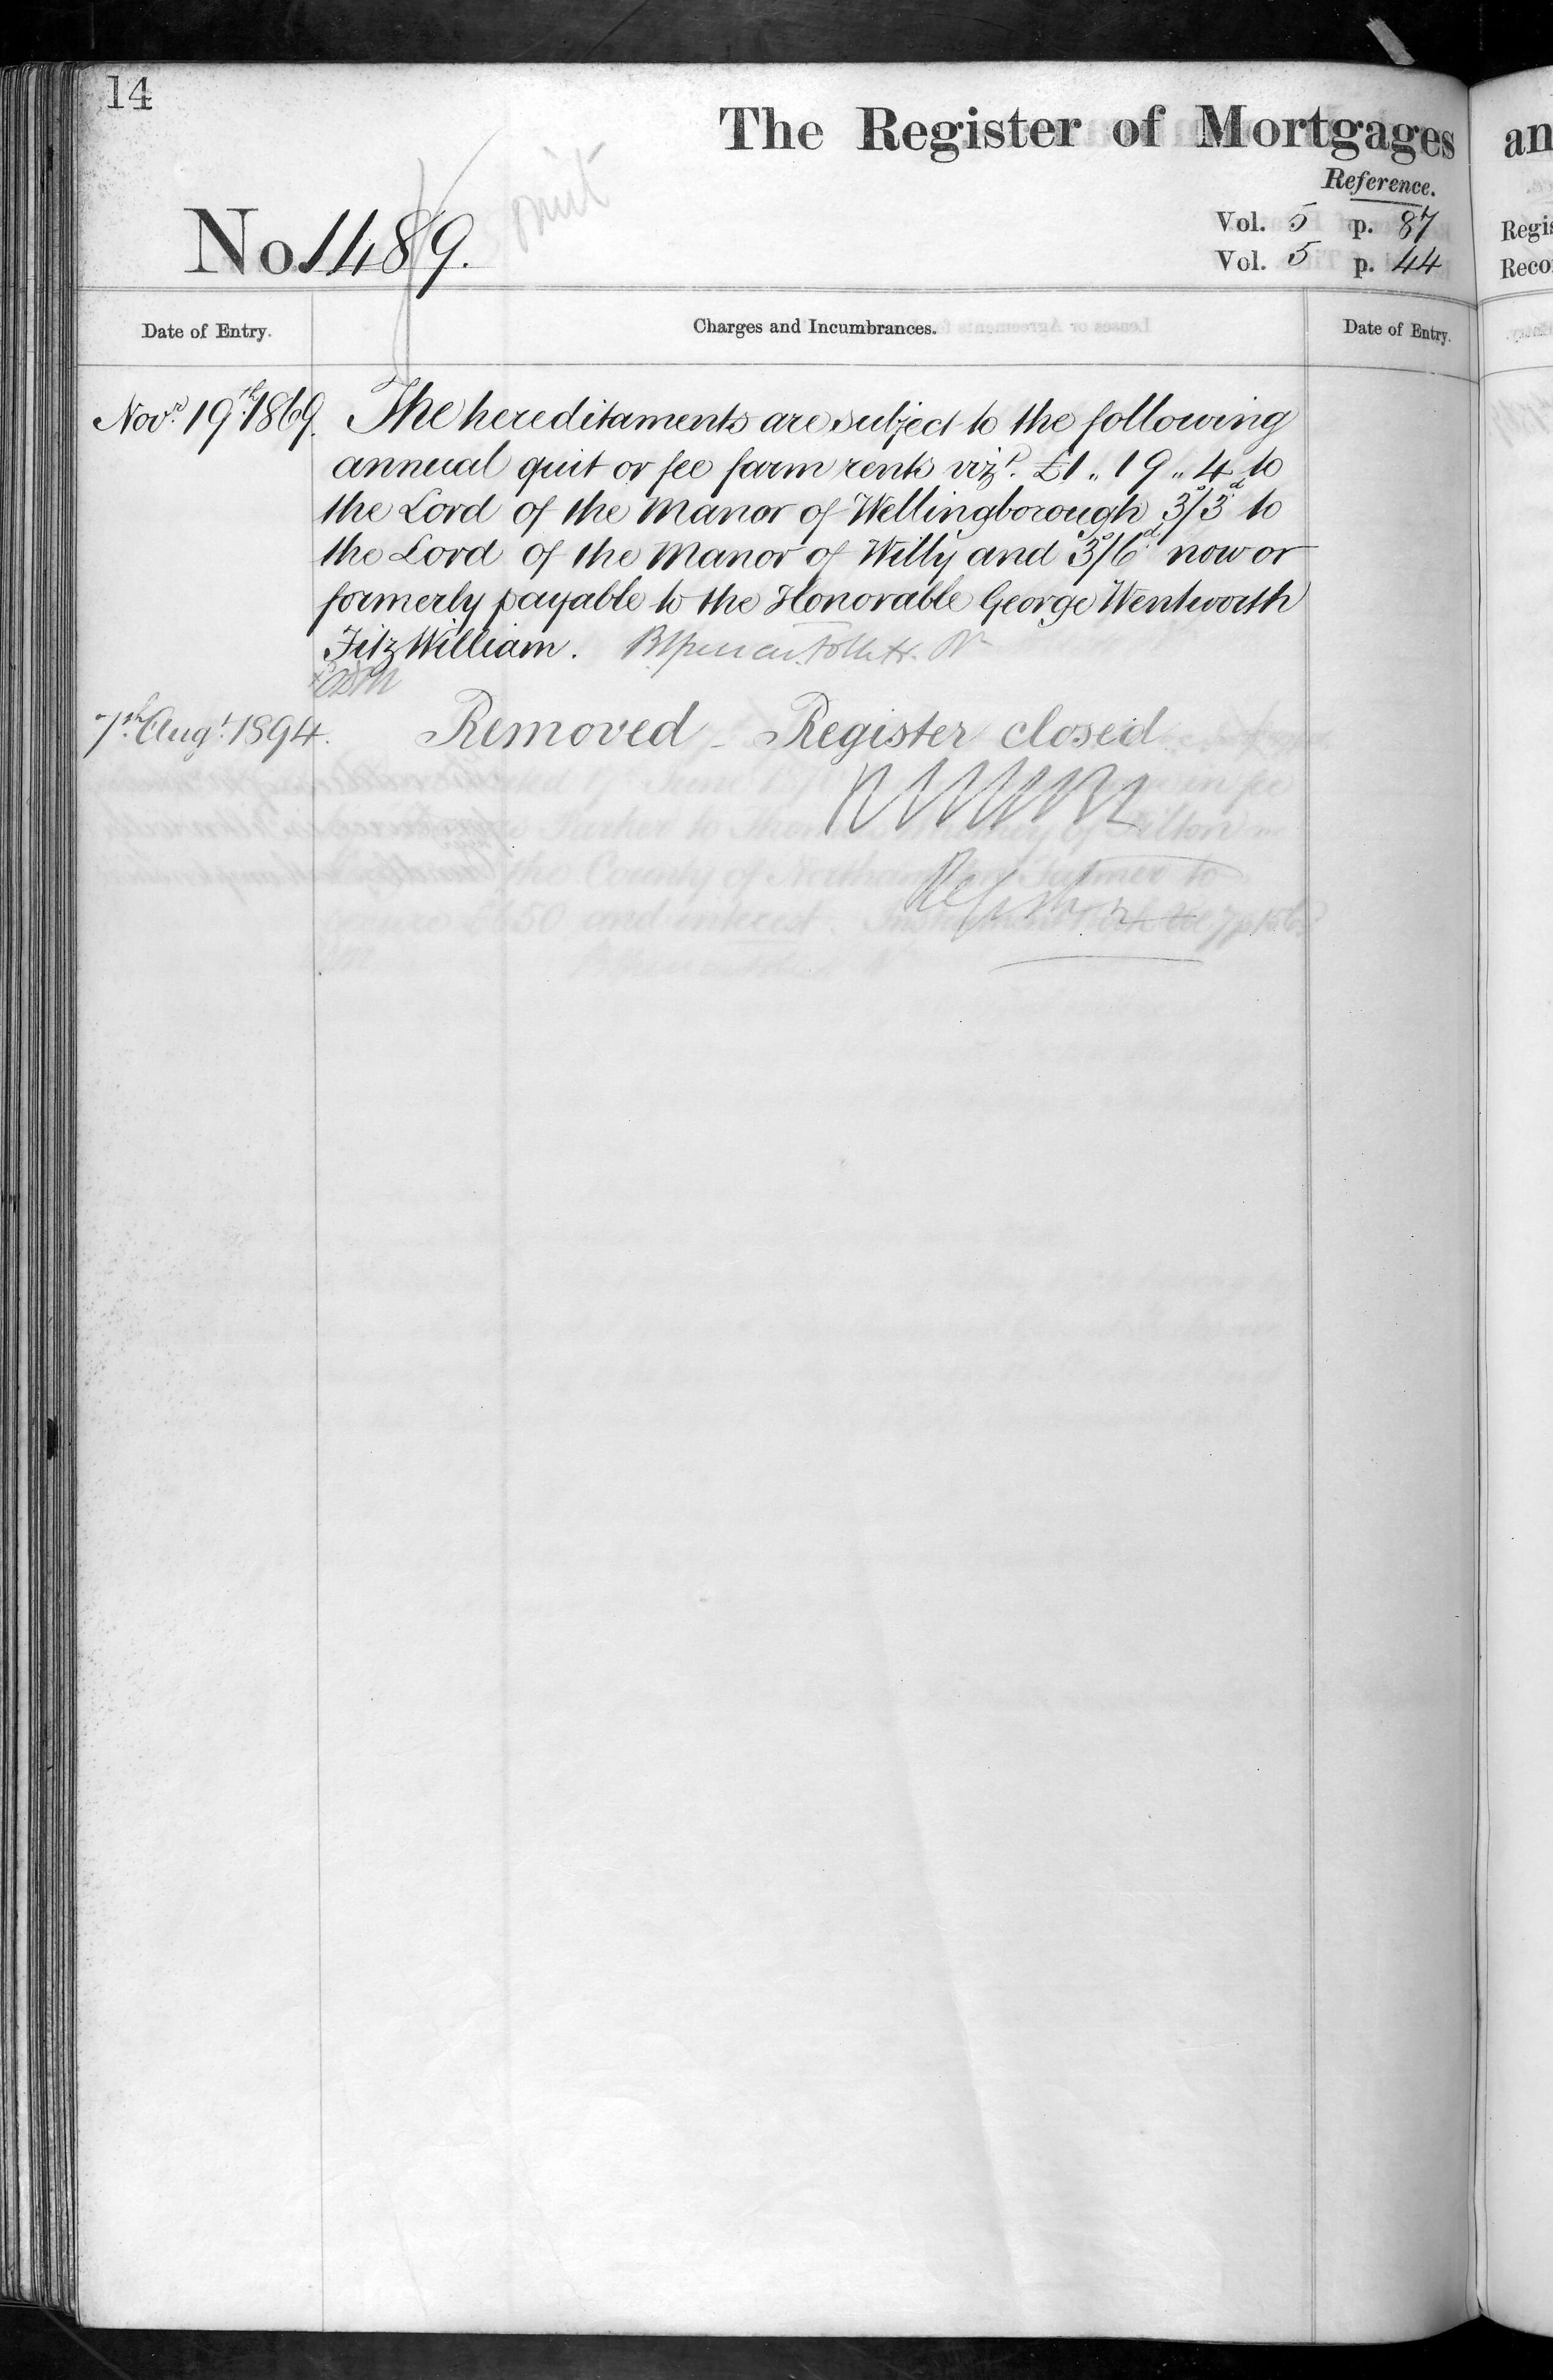 14
The Register of Mortgages
an
Reference.
No 1489.
Vol. 5 p. 87
Regis
Vol. 5 p. 44
Reco
Date of Entry.
Charges and Incumbrances.
Date of Entry.
Novr 19th 1869.
The hereditaments are subject to the following
annual quit or fee farm rents vizt. £1,, 19,, 4 to
the Lord of the Manor of Wellingborough 3s/3d to
the Lord of the Manor of Willy and 3s/6d now or
formerly payable to the Honorable George Wentworth
FitzWilliam.
7th Augt 1894.
Removed - Register closed
Registrar